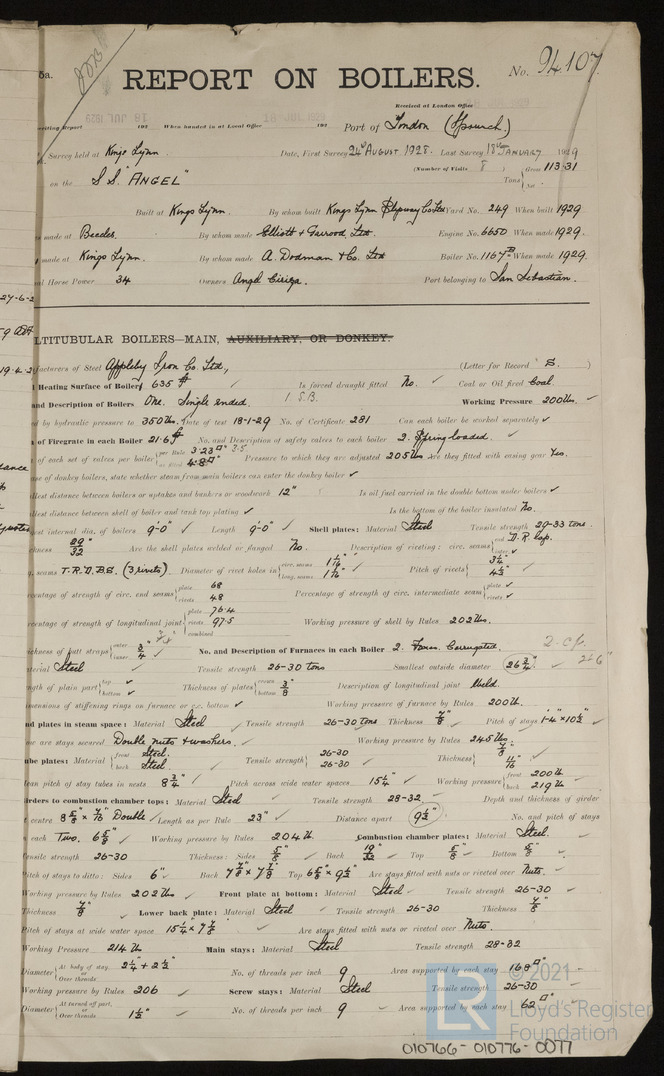 5a.
REPORT ON BOILERS.
No. 94107
Received at London Office
18 JUL 1929
writing Report 192 When handed in at Local Office 192 Port of London (Ipswich)
Survey held at Kings Lynn. Date, First Survey 24th AUGUST 1928. Last Survey 18th JANUARY 1929
(Number of Visits 8)
on the S.S. "ANGEL" Tons Gross 113.31 Net
Built at Kings Lynn. By whom built Kings Lynn Slipway Co Ltd Yard No. 249 When built 1929
made at Beccles. By whom made Elliott & Garrood Ltd. Engine No. 6650 When made 1929.
made at Kings Lynn. By whom made A. Dodman & Co. Ltd Boiler No. 1167B When made 1929.
Horse Power 34 Owners Angel Ciriza. Port belonging to San Sebastian.
LTITUBULAR BOILERS—MAIN, AUXILIARY, OR DONKEY.
facturers of Steel Appleby Iron Co. Ltd., (Letter for Record S.)
Heating Surface of Boilers 635 Is forced draught fitted No. Coal or Oil fired Coal.
and Description of Boilers One. Single ended. 1 S.B. Working Pressure 200 lbs.
by hydraulic pressure to 350 lbs. Date of test 18-1-29 No. of Certificate 281 Can each boiler be worked separately ✓
of Firegrate in each Boiler 21.6 No. and Description of safety valves to each boiler 2. Spring loaded.
of each set of valves per boiler per Rule 3.23 3.5 as fitted 4.8 Pressure to which they are adjusted 205 lbs Are they fitted with easing gear Yes.
se of donkey boilers, state whether steam from main boilers can enter the donkey boiler ✓
llest distance between boilers or uptakes and bunkers or woodwork 12" Is oil fuel carried in the double bottom under boilers ✓
llest distance between shell of boiler and tank top plating ✓ Is the bottom of the boiler insulated No.
est internal dia. of boilers 9'-0" Length 9'-0" Shell plates: Material Steel Tensile strength 29-33 tons.
ckness 29/32" Are the shell plates welded or flanged No. Description of riveting: circ. seams end D.R. lap. inter ✓
seams T.R.D.B.S. (3 rivets) Diameter of rivet holes in circ. seams 1 1/16" long. seams 1 1/16" Pitch of rivets
centage of strength of circ. end seams plate 68 rivets 48 Percentage of strength of circ. intermediate seam plate ✓ rivets ✓
rcentage of strength of longitudinal joint plate 76.4 rivets 97.5 combined Working pressure of shell by Rules 202 lbs.
ickness of butt straps outer 3/4" inner No. and Description of Furnaces in each Boiler 2. Corrugated. 2 c.f.
terial Steel Tensile strength 26-30 tons Smallest outside diameter 26 3/4"
ngth of plain part top ✓ bottom ✓ Thickness of plates crown bottom 3/8" Description of longitudinal joint Weld.
mensions of stiffening rings on furnace or c.c. bottom ✓ Working pressure of furnace by Rules 200 lb.
d plates in steam space: Material Steel Tensile strength 26-30 tons Thickness 7/8" Pitch of stays 1'-4" x 10 1/2"
ow are stays secured Double nuts & washers. Working pressure by Rules 245 lbs.
ube plates: Material front Steel. back Steel Tensile strength 26-30 26-30 Thickness 7/8" 11/16"
ean pitch of stay tubes in nests 8 3/4" Pitch across wide water spaces 15 1/4" Working pressure front 200 lb back 219 lb
irders to combustion chamber tops: Material Steel Tensile strength 28-32 Depth and thickness of girder
t centre 8 5/8" x 7/16" Double Length as per Rule 23" Distance apart 9 1/2" No. and pitch of stays
each Two. 6 5/8" Working pressure by Rules 204 lb. Combustion chamber plates: Material Steel.
ensile strength 26-30 Thickness: Sides 5/8" Back 19/32" Top 5/8" Bottom 5/8"
Pitch of stays to ditto: Sides 6" Back 7 7/8" x 7 7/8" Top 6 5/8" x 9 1/2" Are stays fitted with nuts or riveted over Nuts.
Working pressure by Rules 202 lbs Front plate at bottom: Material Steel Tensile strength 26-30
Thickness 7/8" Lower back plate: Material Steel Tensile strength 26-30 Thickness 7/8"
Pitch of stays at wide water space 15 1/4" x 7 7/8" Are stays fitted with nuts or riveted over Nuts.
Working Pressure 214 lbs Main stays: Material Steel Tensile strength 28-32
Diameter At body of stay, or Over threads 2 1/4" & 2 1/2" No. of threads per inch 9 Area supported by each stay 168
Working pressure by Rules 206 Screw stays: Material Steel Tensile strength 26-30
Diameter At turned off part, or Over threads 1 1/2" No. of threads per inch 9 Area supported by each stay 62
© 2021
LR Lloyd's Register
Foundation
010766-010776-0077